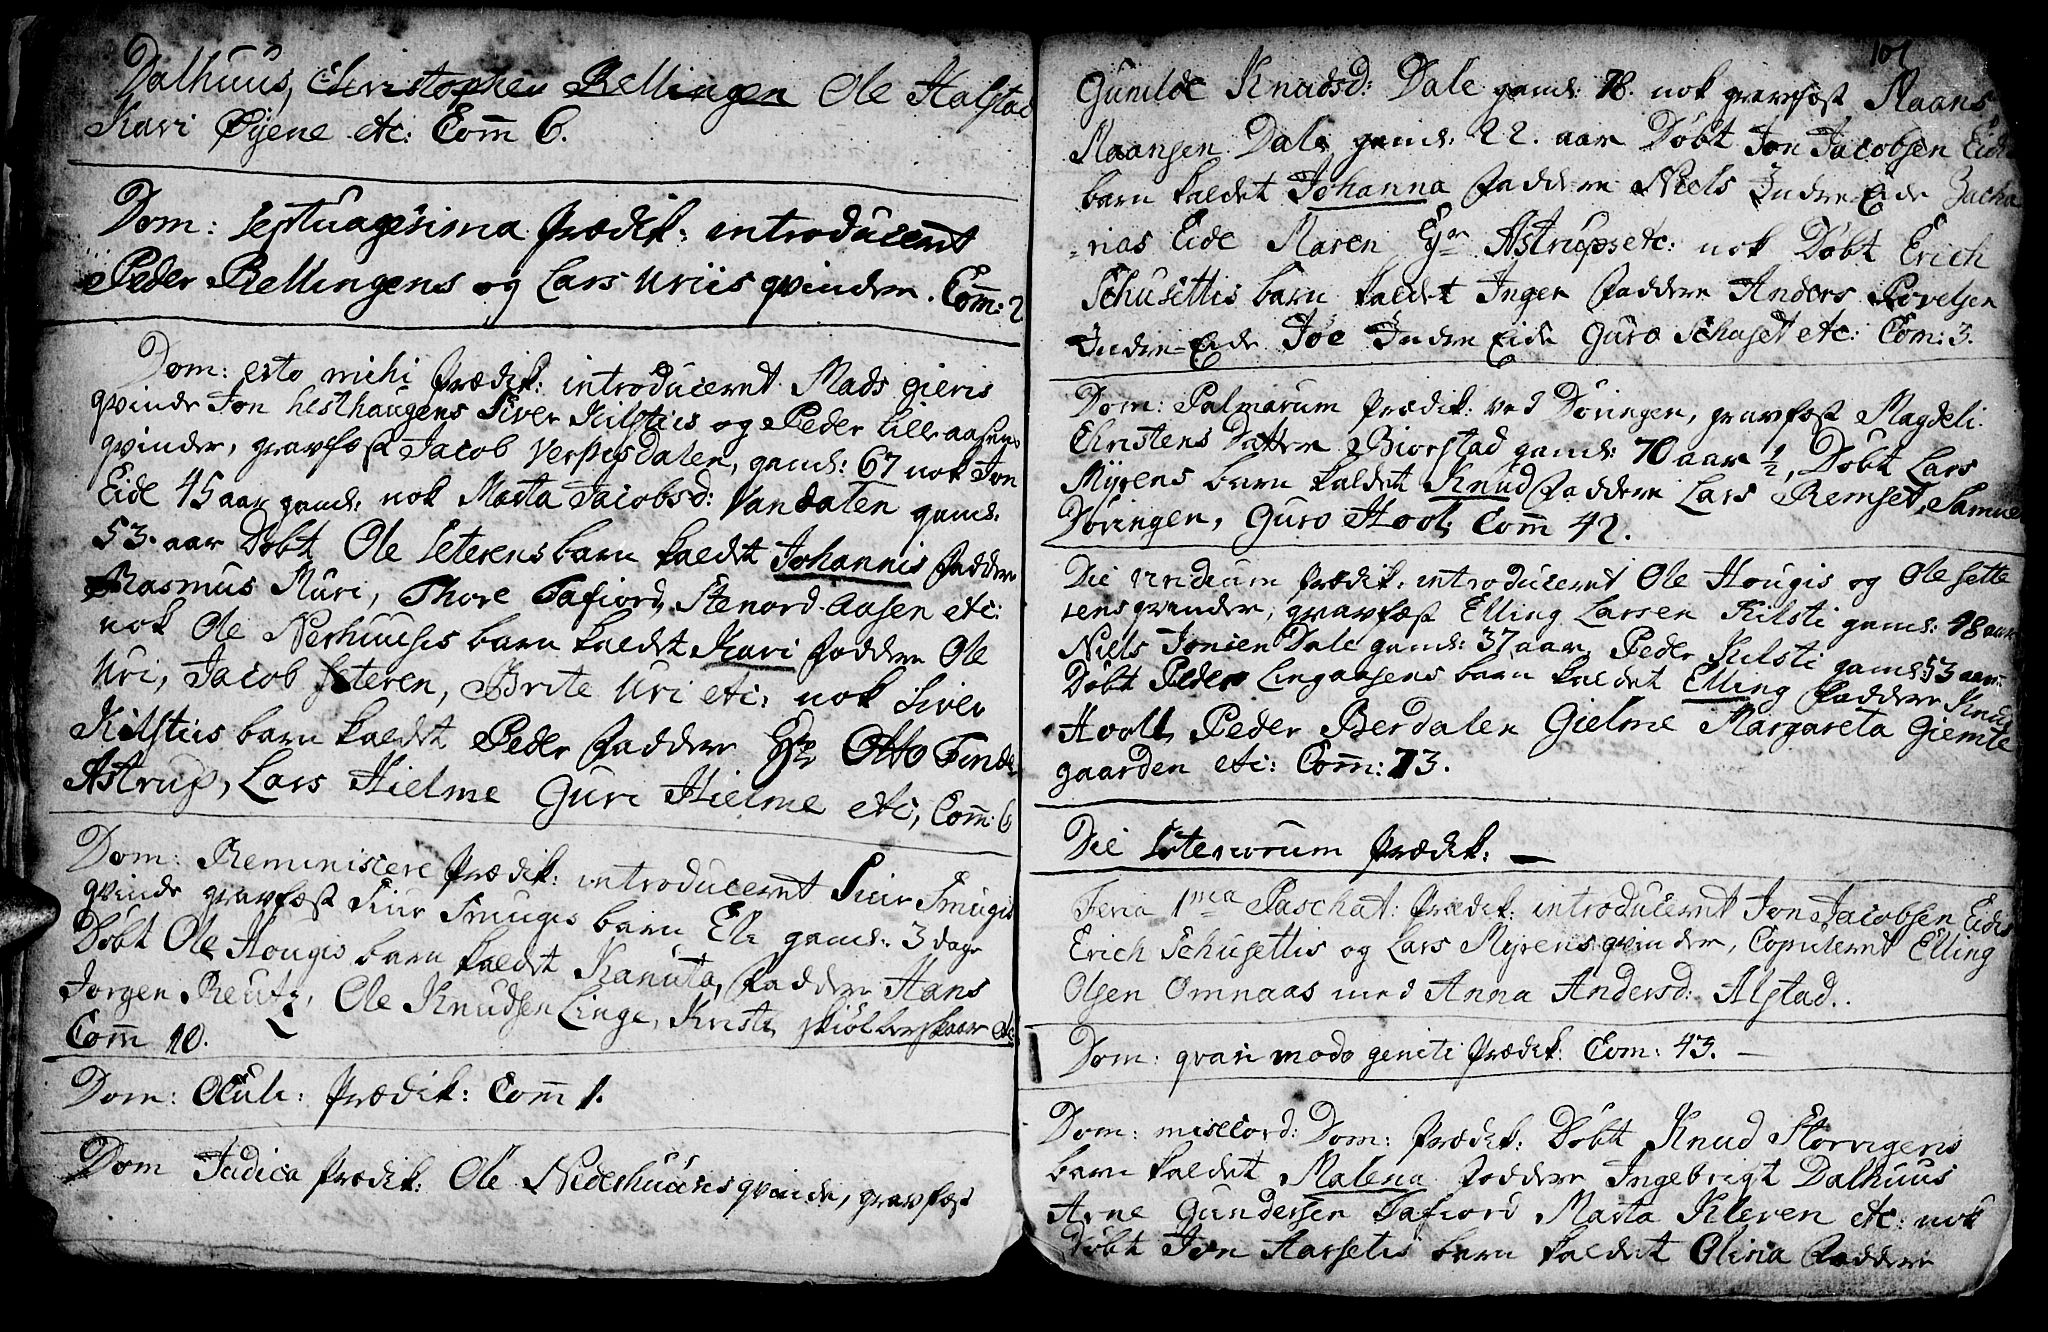 Dalhuus, Christopher Rellingen Ole Halstad
Kari Øyene etc: Com̄ 6.
Dom: septuagesima prædik: introducernt
Peder Rellingens og Lars Uriis qvinder. Com̄: 2
Dom: esto mihi prædik: introducernt Mads gieris
qvinde Jon hesthaugens Siver Kilstiis og Peder lilleaasens
qvinder, gravfæst Jacob Verpesdalen, gaml: 67 nok Jon
Eide 45 aar gaml: nok Marta Jacobsd: Vandalen gaml:
53. aar Døbt Ole seterens barn kaldet Johannis faddere
Rasmus Muri, Thore Tafiord, Stenord-Aasen etc:
nok Ole Nerhuusis barn kaldet Kari faddere Ole
Uri, Jacob seteren, Brite Uri etc: nok siver
Kilstiis barn kaldet Peder faddere Hr Otto Finde
Astrup, Lars Hielme Guri Hielme etc, Com̄: 6
Dom: Reminiscere prædik: introducernt Siur Smugis
qvinde gravfæst siur Smugis barn Eli gaml: 3 dage
Døbt Ole Hougis barn kaldet Kanuta, faddere Hans
Jørgen Reutz, Ole Knudsen Linge, Kirsti skiølberskaar etc
Com̄ 10.
Dom: Oculi: prædik: Com̄ 1.
Dom Judica prædik: Ole Nederhuusis qvinde, gravfæst
101
Gunilde Knudsd: Dale gaml: 78. nok gravfæst Maans
Maansen Dale gaml: 22. aar Døbt Jon Jacobsen Eide
barn kaldet Johanna faddere Niels Indre-Eide Zacha
rias Eide Maren Astrups etc: nok Døbt Erich
Schusettis barn kaldet Inger faddere Anders Povelsen
Indre-Eide Joe Indre Eide Guro Schuset etc: Com: 3.
Dom: Palmarum prædik: ved Døvingen, gravfæst Magdeli
Christens Datter Biorstad gaml: 70 aar ½, Døbt Lars
Myrens barn kaldet Knud faddere Lars Remset, Samuel
Døvingen, Guro Hool, Com̄ 42.
Die viridium prædik: introducernt Ole Hougis og Ole sette
rens qvinder, gravfæst Elling Larsen Kilsti gaml: 48 aar
Niels Jonsen Dale gaml: 37 aar, Peder Kilsti gaml: 53 aar.
Døbt Peder Lingaasens barn kaldet Elling faddere Knud
Hooll, Peder Berdalen Gielme Margareta Giemle
gaarden etc: Com̄: 73.
Die prædik: —
Feria 1ma Paschat: prædik: introducernt Jon Jacobsen Eidis
Erich Schusettis og Lars Myrens qvinder, Copulernt Elling
Olsen Omnaas med Anna Andersd: Alstad.
Dom: qvasi modo geniti prædik: Com: 43. —
Dom: misecord: Dom: prædik: Døbt Knud Storvigens
barn kaldet Malena faddere Ingebrigt Dalhuus
Arne Gundersen Tafiord Marta Kleven etc: nok
Døbt Jon Aarsetis barn kaldet Olina faddere